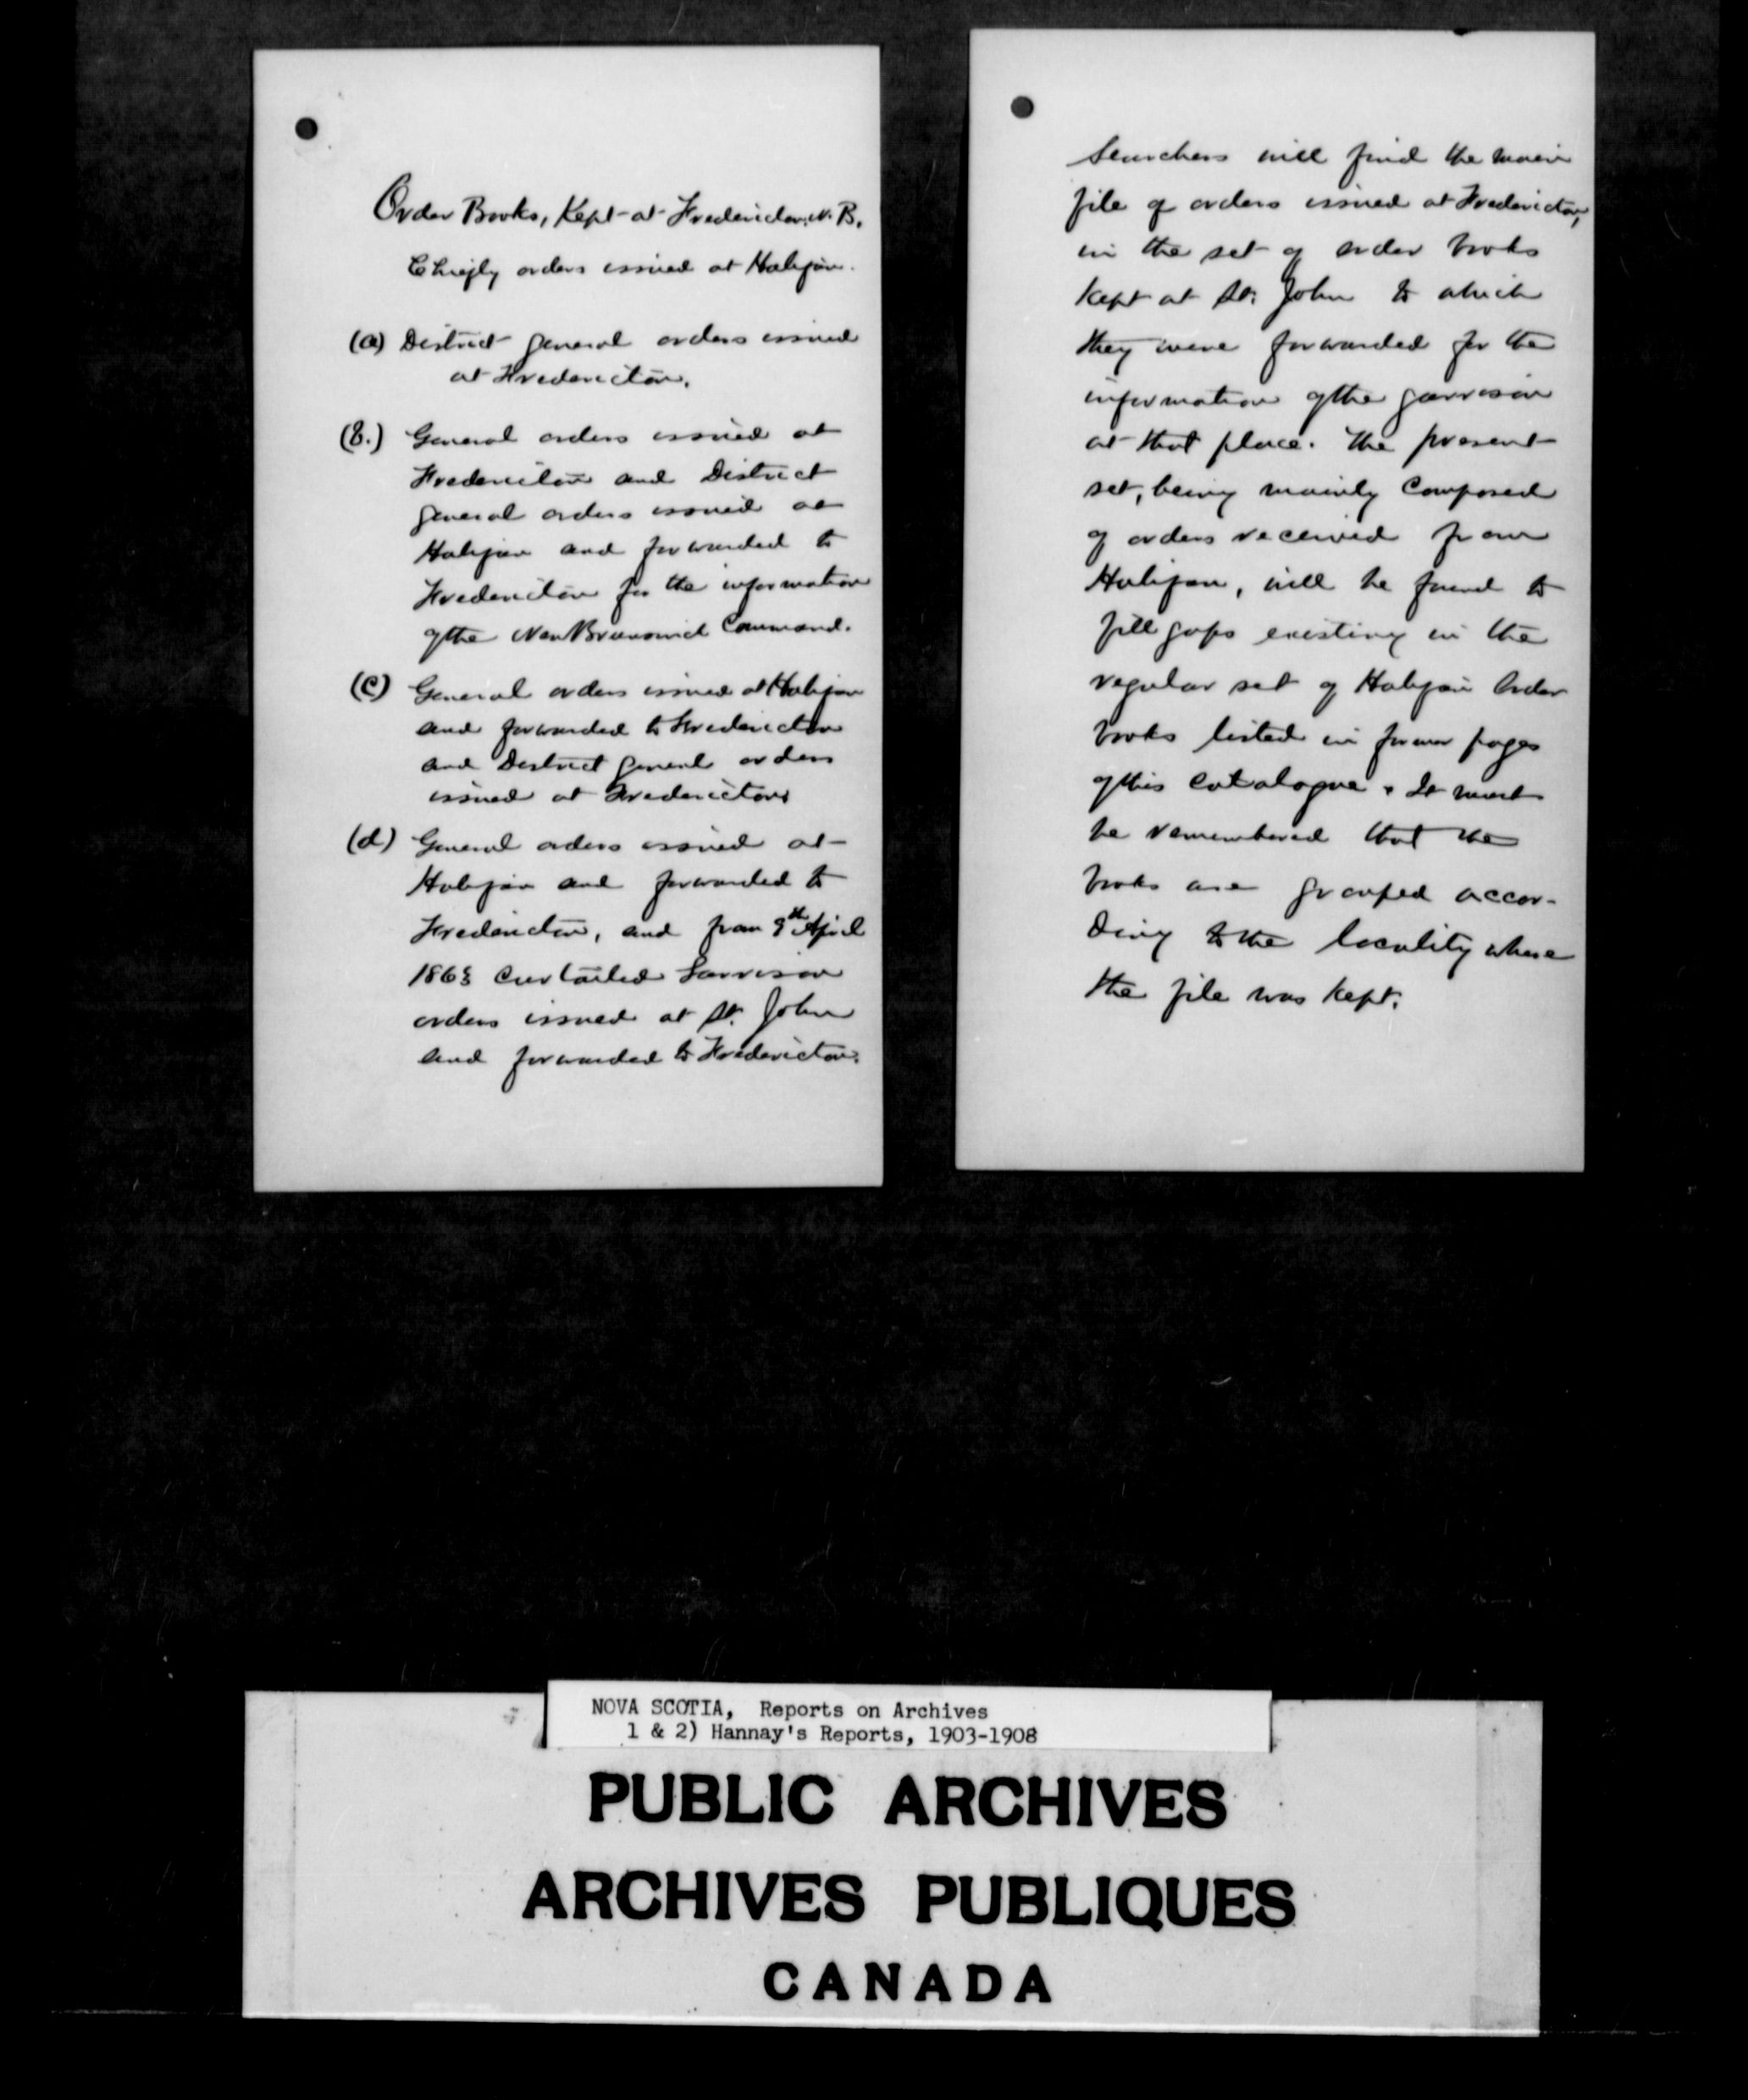 Order Books, Kept at Fredericton, N. B.
Chiefly orders issued at Halifax.
(a) District general orders issued
at Fredericton.
(b.) General orders issued at
Fredericton and District
general orders issued at
Halifax and forwarded to
Fredericton for the information
of the New Brunswick Command.
(c) General orders issued at Halifax
and forwarded to Fredericton
and District general orders
issued at Fredericton
(d) General orders issued at
Halifax and forwarded to
Fredericton, and from 9th April
curtailed Garrison
orders issued at St. John
and forwarded to Fredericton.
Searchers will find the main
file of orders issued at Fredericton,
in the set of order books
kept at St. John to which
they were forwarded for the
information of the garrison
at that place. The present
set, being mainly composed
of orders received from
Halifax, will be found to
fill gaps existing in the
regular set of Halifax Order
books listed in former pages
of this catalogue. It must
be remembered that the
books are grouped accor-
ding to the locality where
the file was kept.
NOVA SCOTIA, Reports on Archives
1 & 2) Hannay's Reports, 1903-1908
PUBLIC ARCHIVES
ARCHIVES PUBLIQUES
CANADA